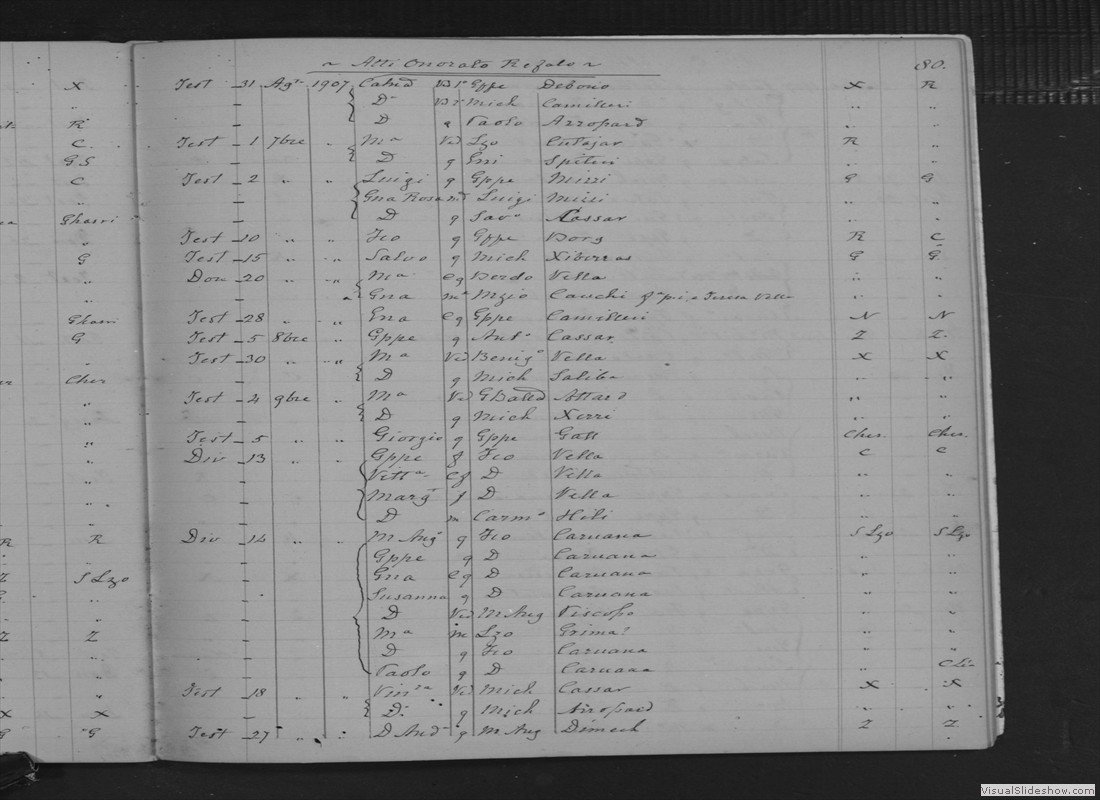 ~ Atti Onorato Refalo ~ 80.
X Test 31 Ag. 1907 Gppe Debono X R
" D Mich Camilleri " "
R D q Paolo Azzopard " "
C. Test 1 7bre " Ma Ved Lzo Cutajar R "
G S D q Spiteri " "
C Test 2 " " Luigi q Gppe Mizzi G G
" Gna Rosa Luigi Mizzi " "
Gharri D q Sav. Cassar " "
" Test 10 " " Fco q Gppe Borg R C
G Test 15 " " Salvo q Mich Xiberras G G
" Don 20 " " Ma Vella " "
" Gna Cauchi " "
Gharri Test 28 " " Gppe Camilleri N N
G Test 5 8bre " Gppe q Ant. Cassar Z Z.
" Test 30 " " Ma Ved Benig. Vella X X
Cher D q Mich Saliba " "
" Test 4 9bre " Ma Ved Attard " "
" D q Mich Xerri " "
" Test 5 " " Giorgio q Gppe Gatt Cher. Cher.
" Div 13 " " Gppe f Fco Vella C C
" Vitta D Vella " "
" Marg f D Vella " "
" D m Carm. Hili " "
R R Div 14 " " M Aug q Fco Caruana S Lzo S Lzo
" Gppe q D Caruana " "
Z S Lzo Gna e q D Caruana " "
" Susanna q D Caruana " "
" D Ved M Aug Piscopo " "
Z Z Ma m Lzo Grima " "
" D q Fco Caruana " "
" Paolo q D Caruana "
" Test 18 " " Ved Mich Cassar X X
X X D. q Mich " "
G G Test 27 " " D And q M Aug Dimech Z Z
VisualSlideshow.com